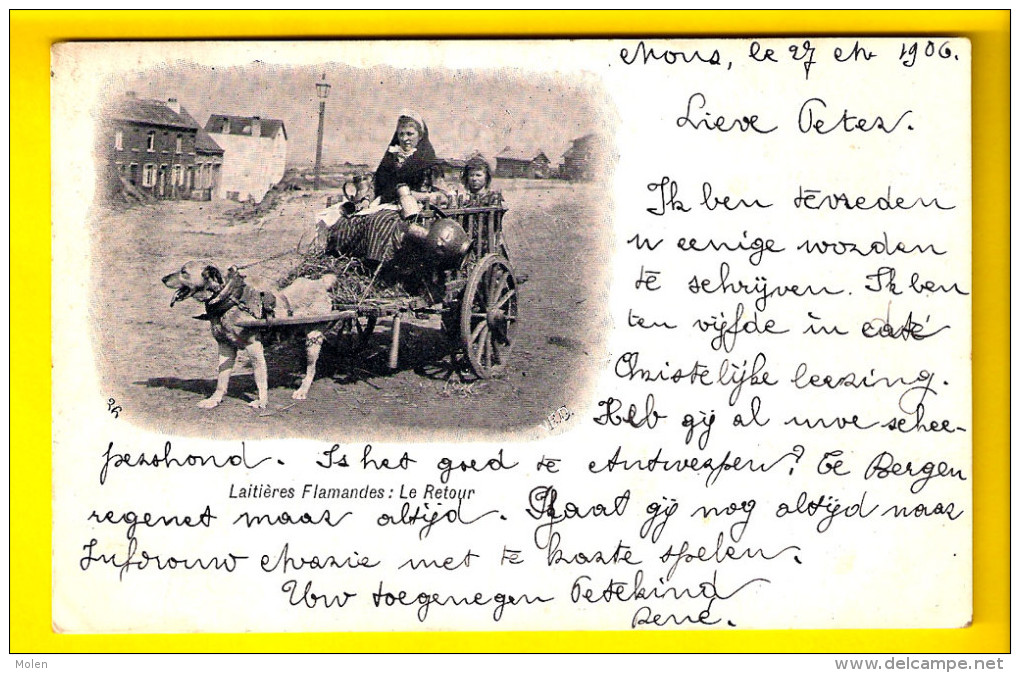 Mons, le 27 M 1906.
Lieve Peter.
Ik ben tevreden
u eenige worden
te schrijven. Ik ben
ten vijfde in caté
Christelijke leering.
Heb gij al uwe schee-
pershond. Is het goed te Antwerpen? Te Bergen
Laitières Flamandes: Le Retour
regenet maar altijd. Gaat gij nog altijd naar
Jufdrouw Marie met te karte spelen.
Uw toegenegen Petekind
René.
Molen
www.delcampe.net